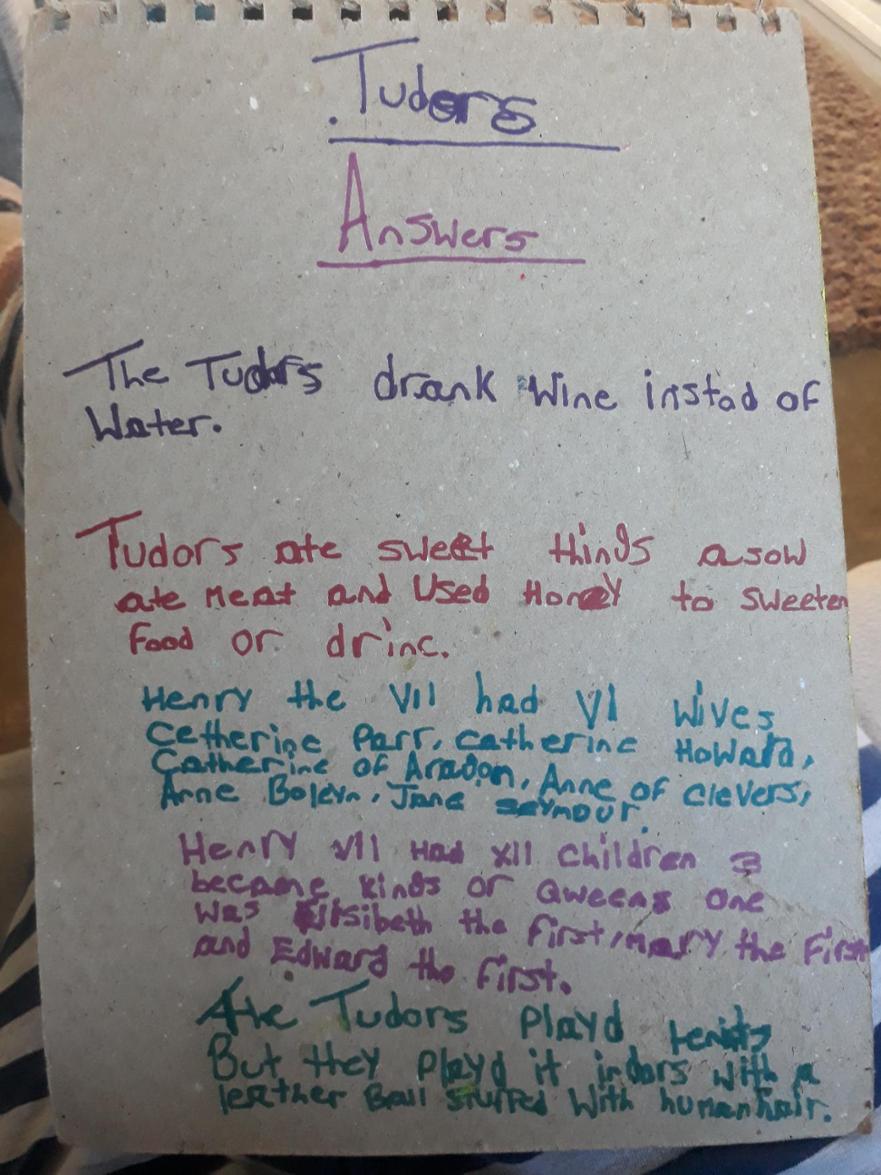 Tudors
Answers
The Tudors drank wine instad of
Water.
Tudors ate sweet things asow
ate Meat and Used Honey to sweeten
food or drinc.
Henry the VII had VI wives
Cetherine Parr, Catherine Howard,
Catherine of Aragon, Anne of clevers,
Anne Boleyn, Jane seymour.
Henry VII Had XII children 3
became kings or qweens one
was Elisibeth the first, mary the First
and Edward the first.
the Tudors Playd tenids
But they playd it indors with a
leather Ball stuffed with human hair.